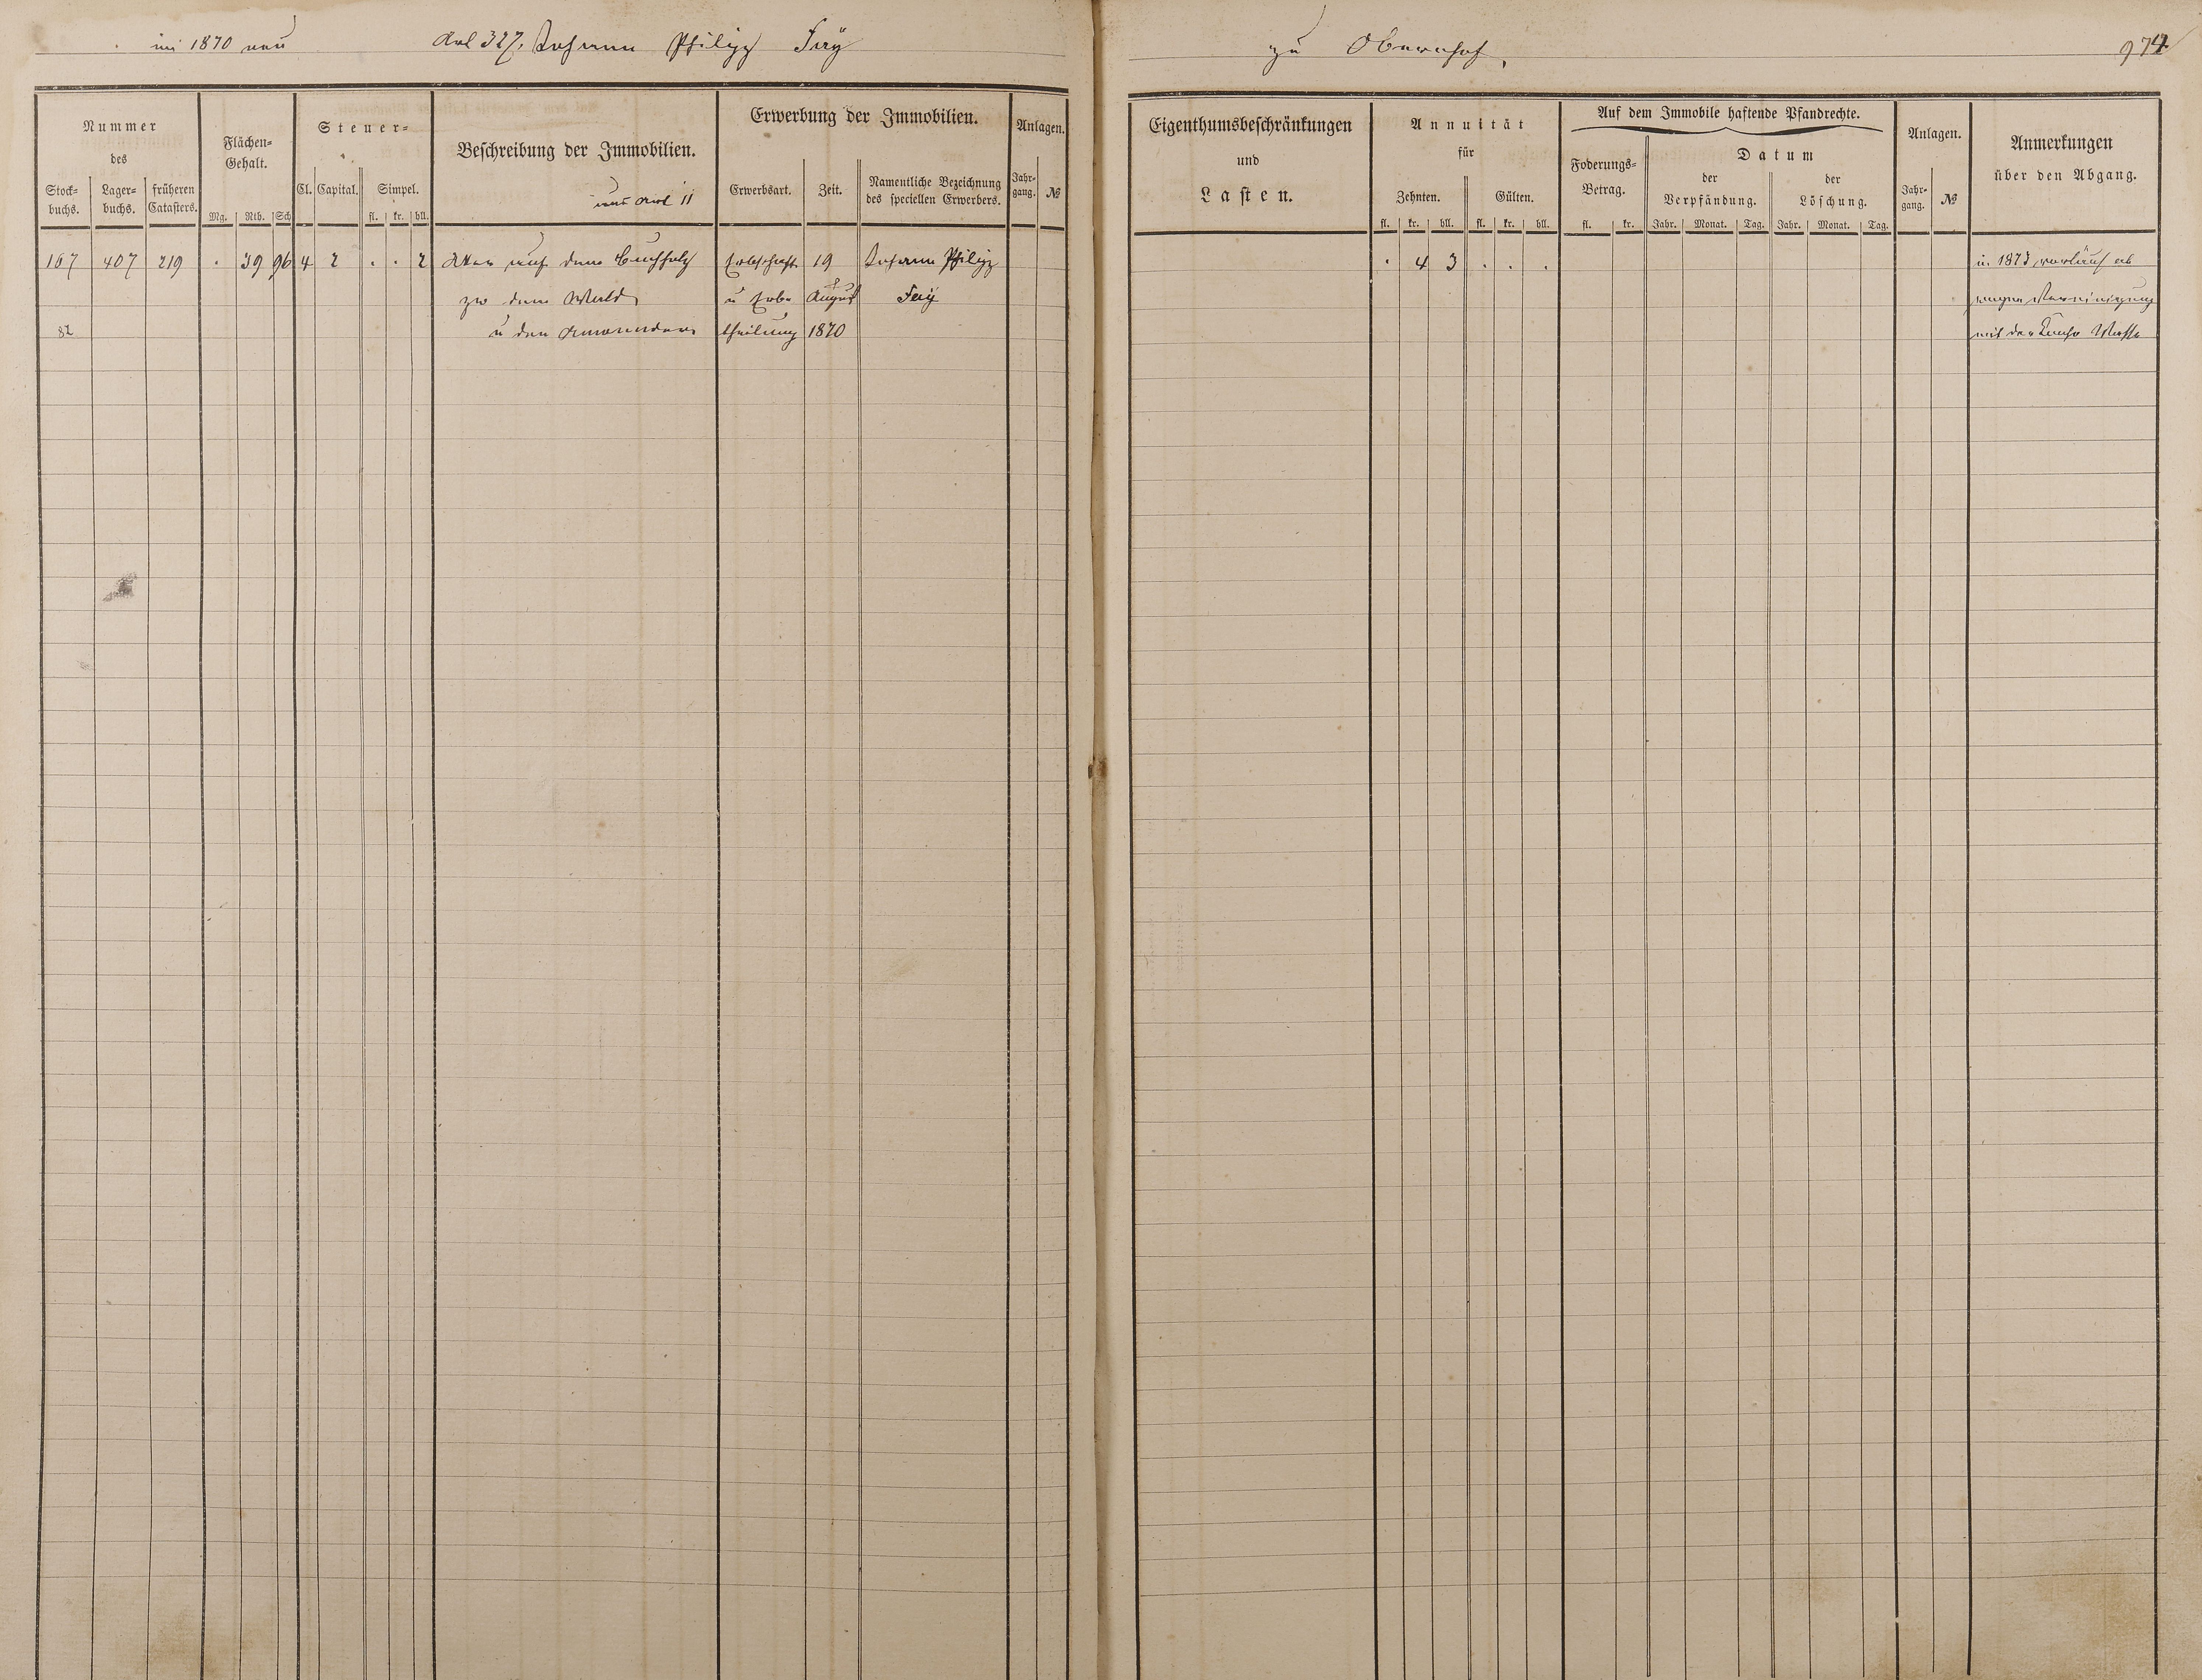 in 1870 neu Art 327. Johann Philipp Fay zu Obernhof. 974
Nummer
des
Stock-
buchs.
Lager-
buchs.
früheren
Catasters.
Flächen-
Gehalt.
Mg. Rth. Sch
Steuer-
Cl. Capital. Simpel.
fl. kr. hll.
Beschreibung der Immobilien.
aus Art 11
Erwerbung der Immobilien.
Erwerbsart. Zeit.
Namentliche Bezeichnung
des speciellen Erwerbers.
Anlagen.
Jahr-
gang. №
Eigenthumsbeschränkungen
und
Lasten.
Annuität
für
Zehnten. Gülten.
fl. kr. hll. fl. kr. hll.
Auf dem Immobile haftende Pfandrechte.
Foderungs-
Betrag.
fl. kr.
Datum
der
Verpfändung.
der
Löschung.
Jahr. Monat. Tag. Jahr. Monat. Tag.
Anlagen.
Jahr-
gang. №
Anmerkungen
über den Abgang.
167 407 219 . 39 96 4 2 . . 2 Acker auf dem Buchholz Erbschaft 19 Johann Philipp . 4 3 . . . in 1873 ab
zw dem Wald u Erb- August Fay wegen Vereinigung
82 u den Anwendern theilung 1870 mit der Masse